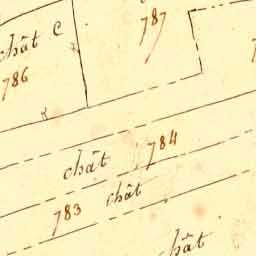 chât C
786
787
chât 784
783 chât
hât